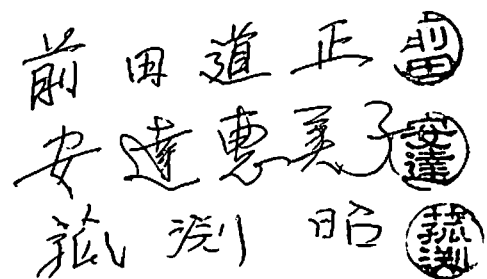 前田道正 前田
安達惠美子 安達
菰渕昭 菰渕